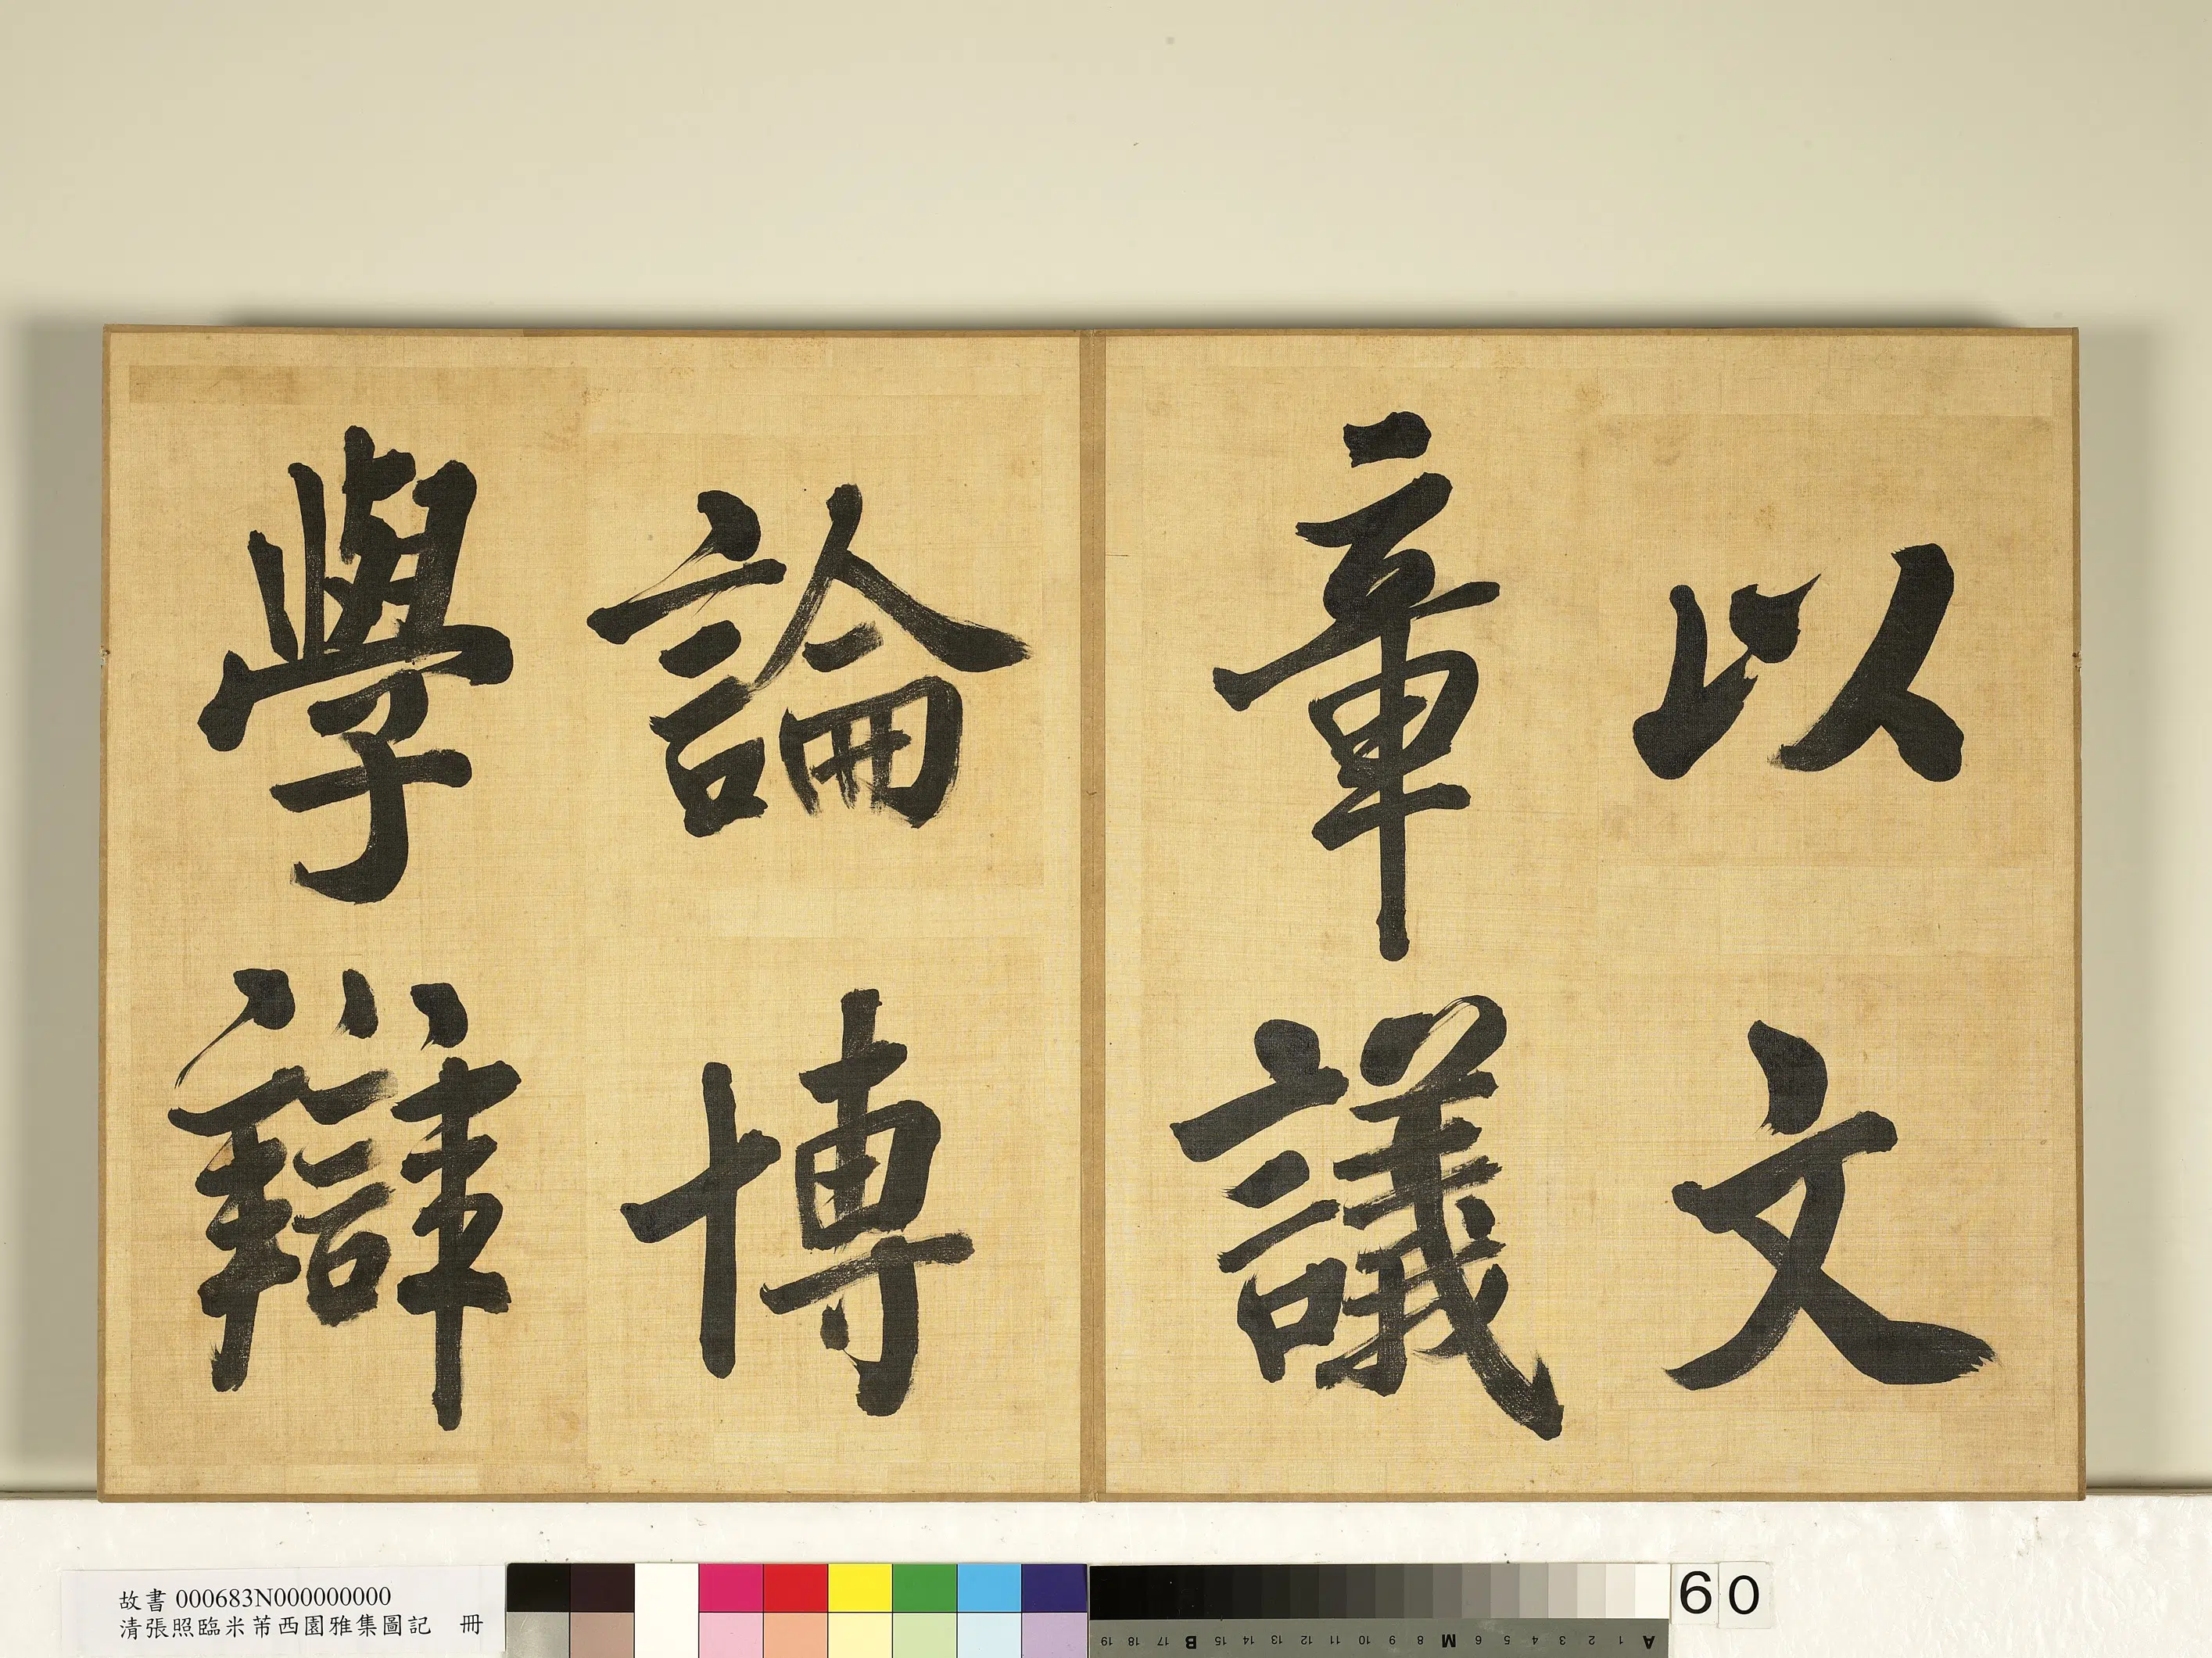 以文
章議
論博
學辯
故書 000683N000000000
清張照臨米芾西園雅集圖記 冊
60
19 18 17 B 15 14 13 12 11 10 9 8 M 6 5 4 3 2 1 A